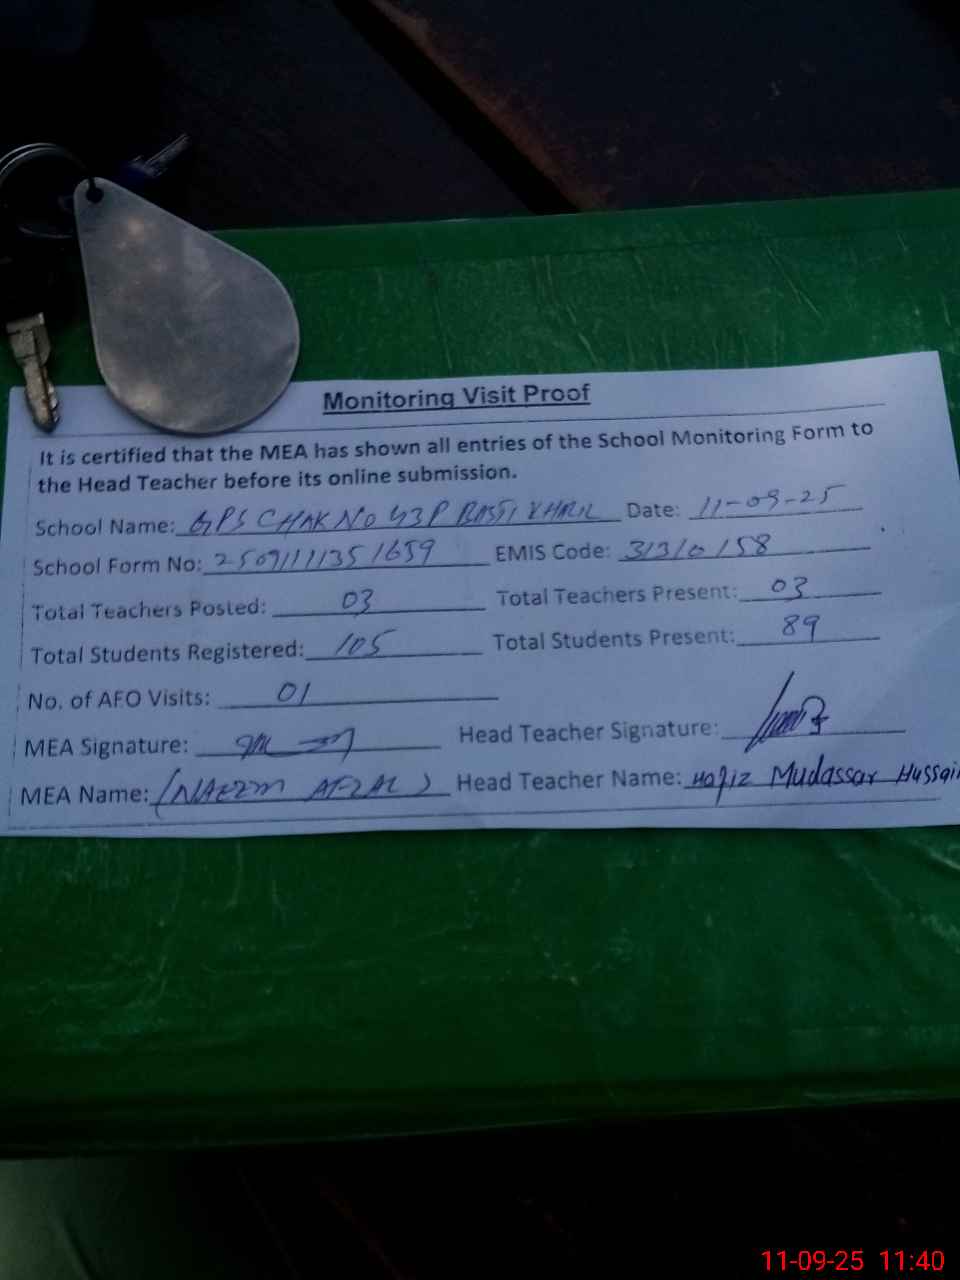 Monitoring Visit Proof
It is certified that the MEA has shown all entries of the School Monitoring Form to
the Head Teacher before its online submission.
School Name: GPS CHAK NO 43P BASTI KHARL Date: 11-09-25
School Form No: 2509111135 1659 EMIS Code: 31310158
Total Teachers Posted: 03 Total Teachers Present: 03
Total Students Registered: 105 Total Students Present: 89
No. of AFO Visits: 01
MEA Signature: Head Teacher Signature:
MEA Name: (NAEEM AFZAL) Head Teacher Name: Hafiz Mudassar Hussai
11-09-25 11:40